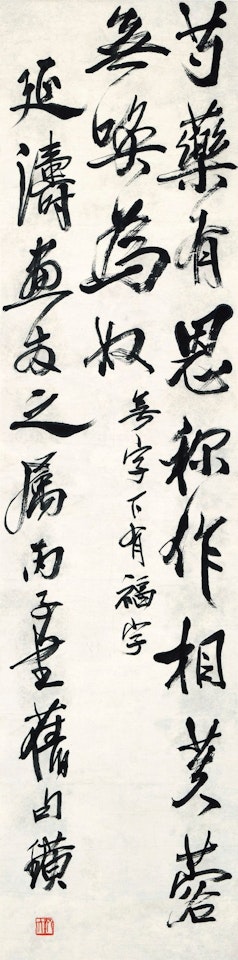 芍藥有恩称作相芙蓉
無喚為奴
無字下有福字
延濤畫友之屬丙子書舊句璜